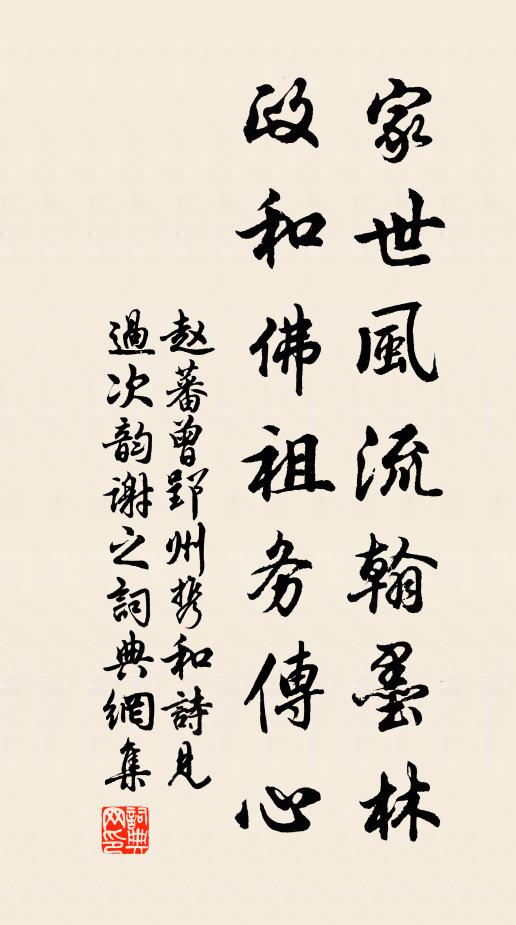 家世風流翰墨林
政和佛祖务傳心
赵蕃曾郢州携和詩見
過次韵谢之詞典網集
詞典網印